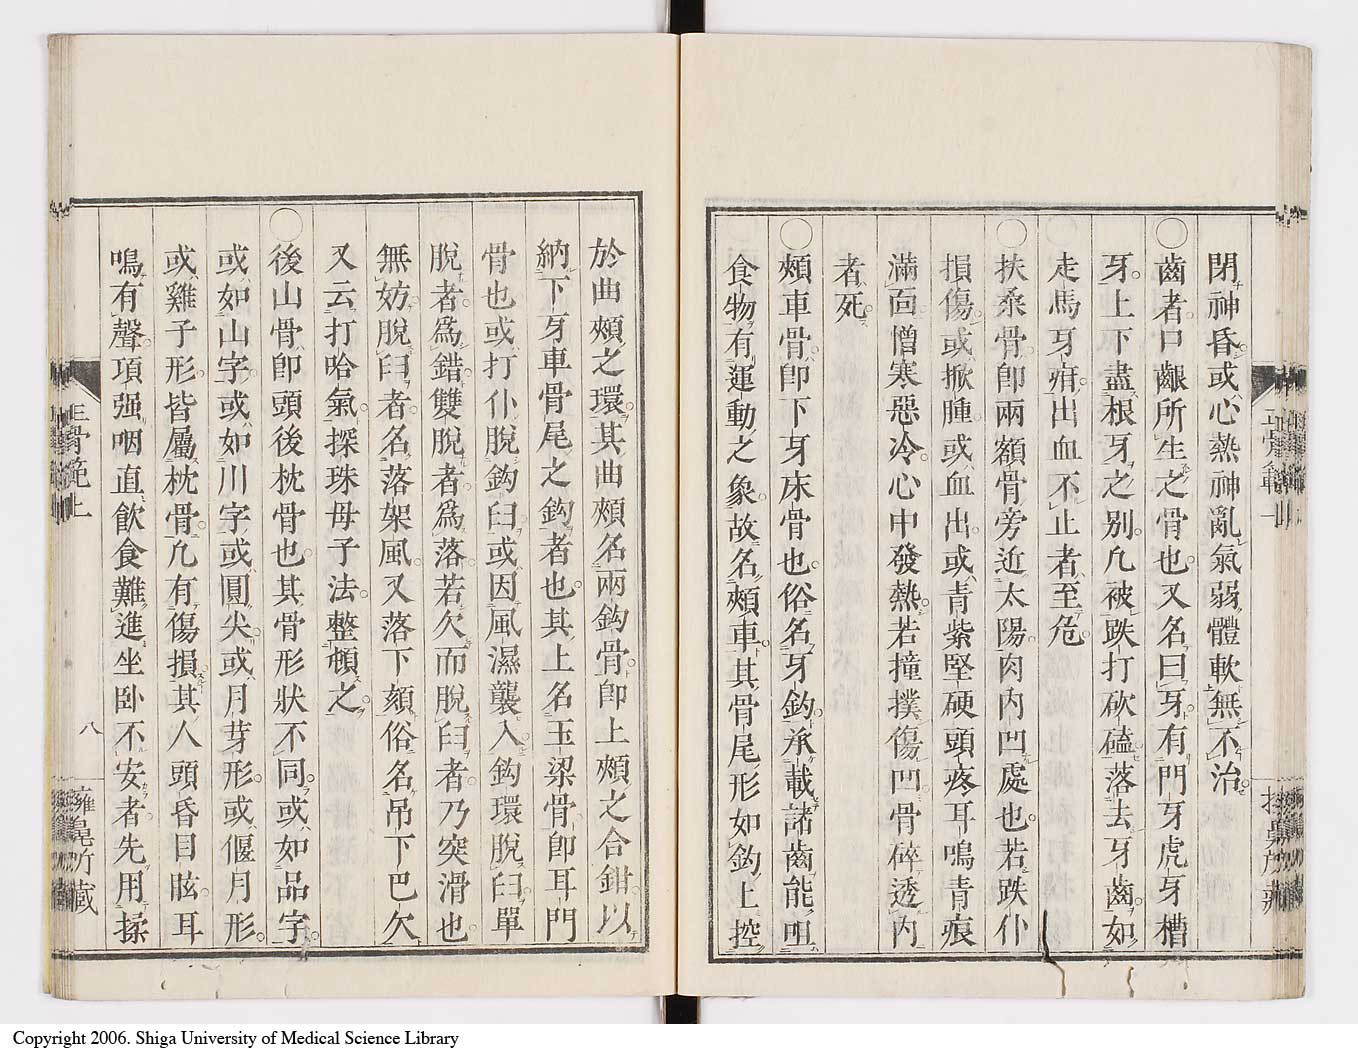 閉神昏或心熱神亂氣弱體軟無不治
〇齒者口齦所生之骨也又名曰牙有門牙虎牙槽
牙上下盡根牙之别凢被跌打砍磕落去牙齒如
走馬牙疳出血不止者至危
〇扶桑骨卽兩額骨旁近太陽肉内凹處也若跌仆
損傷或掀腫或血出或青紫堅硬頭疼耳鳴青痕
滿面憎寒惡冷心中發熱若撞撲傷凹骨碎透内
者死
〇頰車骨卽下牙床骨也俗名牙鈎承載諸齒能咀
食物有運動之象故名頰車其骨尾形如鈎上控
於曲頰之環其曲頰名兩鈎骨卽上頰之合鉗以
納下牙車骨尾之鈎者也其上名玉梁骨卽耳門
骨也或打仆脫鈎臼或因風濕襲入鈎環脫臼單
脫者爲錯雙脫者爲落若欠而脫臼者乃突滑也
無妨脫臼者名落架風又落下頦俗名吊下巴欠
又云打哈氣探珠母子法整頓之
〇後山骨卽頭後枕骨也其骨形狀不同或如品字
或如山字或如川字或圓尖或月芽形或偃月形
或雞子形皆屬枕骨凢有傷損其人頭昏目眩耳
鳴有聲項强咽直飲食難進坐卧不安者先用揉
正骨範上
八